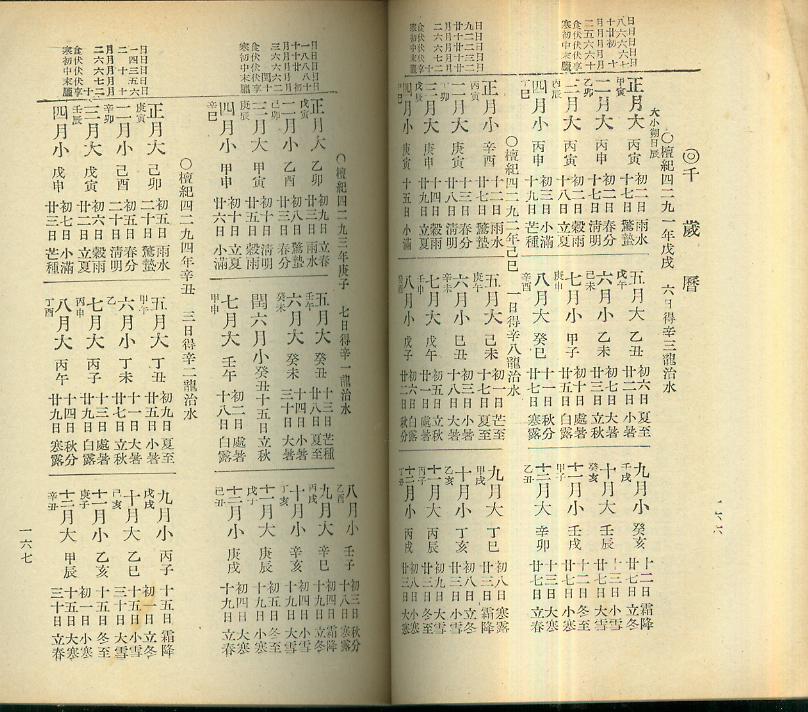 ◎千歲曆
○檀紀四二九一年戊戌 六日得辛三龍治水
大小朔日辰
甲寅 正月大 丙寅 初二日雨水 十七日驚蟄
乙卯 二月大 丙申 初二日春分 十七日清明
丙辰 三月大 丙寅 初二日穀雨 十八日立夏
丁巳 四月小 丙申 初三日小滿 十九日芒種
戊午 五月大 乙丑 初六日夏至 廿二日小暑
己未 六月小 乙未 初七日大暑 廿三日立秋
庚申 七月小 甲子 初十日處暑 廿五日白露
辛酉 八月大 癸巳 十一日秋分 廿七日寒露
壬戌 九月小 癸亥 十二日霜降 廿七日立冬
癸亥 十月大 壬辰 十二日小雪 廿七日大雪
甲子 十一月小 壬戌 十二日冬至 廿七日小寒
乙丑 十二月大 辛卯 十三日大寒 廿七日立春
○檀紀四二九二年己巳 一日得辛八龍治水
丙寅 正月小 辛酉 十二日雨水 廿七日驚蟄
丁卯 二月大 庚寅 十三日春分 廿八日清明
戊辰 三月大 庚申 十四日穀雨 廿九日立夏
己巳 四月小 庚寅 十五日小滿
庚午 五月大 己未 初一日芒種 十七日夏至
辛未 六月小 己丑 十八日大暑
壬申 七月大 戊午 廿一日處暑
癸酉 八月小 戊子 初六日白露 廿二日秋分
甲戌 九月大 丁巳 初八日寒露 廿三日霜降
乙亥 十月小 丁亥 初八日立冬 廿三日小雪
丙子 十一月大 丙辰 初九日大雪 廿三日冬至
丁丑 十二月小 丙戌 初八日小寒 廿三日大寒
一六六
○檀紀四二九三年庚子 七日得辛一龍治水
戊寅 正月大 乙卯 初九日立春 廿三日雨水
己卯 二月小 乙酉 初八日驚蟄 廿三日春分
庚辰 三月大 甲寅 初十日清明 廿五日穀雨
辛巳 四月小 甲申 初十日立夏 廿六日小滿
壬午 五月大 癸丑 十三日芒種 廿八日夏至
癸未 六月大 癸未 十四日小暑 三十日大暑
閏六月小 癸丑 十五日立秋
甲申 七月大 壬午 初二日處暑 十八日白露
乙酉 八月小 壬子 初三日秋分 十八日寒露
丙戌 九月大 辛巳 初四日霜降 十九日立冬
丁亥 十月小 辛亥 初四日小雪 十九日大雪
戊子 十一月大 庚辰 初五日冬至 十九日小寒
己丑 十二月小 庚戌 初四日大寒 十九日立春
○檀紀四二九四年辛丑 三日得辛二龍治水
庚寅 正月大 己卯 初五日雨水 二十日驚蟄
辛卯 二月小 己酉 初五日春分 二十日清明
壬辰 三月大 戊寅 初六日穀雨 廿二日立夏
四月小 戊申 初七日小滿 廿三日芒種
甲午 五月大 丁丑 初九日夏至 廿五日小暑
六月小 丁未 十一日大暑 廿七日立秋
丙申 七月大 丙子 十三日處暑 廿九日白露
丁酉 八月大 丙午 十四日秋分 廿九日寒露
戊戌 九月小 丙子 十五日霜降
己亥 十月大 乙巳 初一日立冬 十五日小雪 三十日大雪
庚子 十一月小 乙亥 十五日冬至
辛丑 十二月大 甲辰 初一日小寒 十五日大寒 三十日立春
一六七